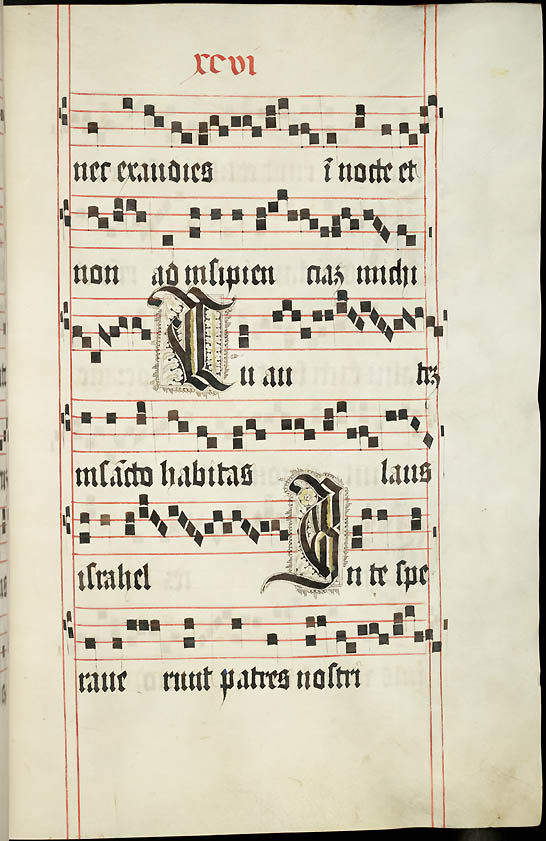 xcvi
nec exaudies ī nocte et
non ad insipien ciaz michi
Tu au tez
in sācto habitas laus
israhel In te spe
raue runt patres nostri